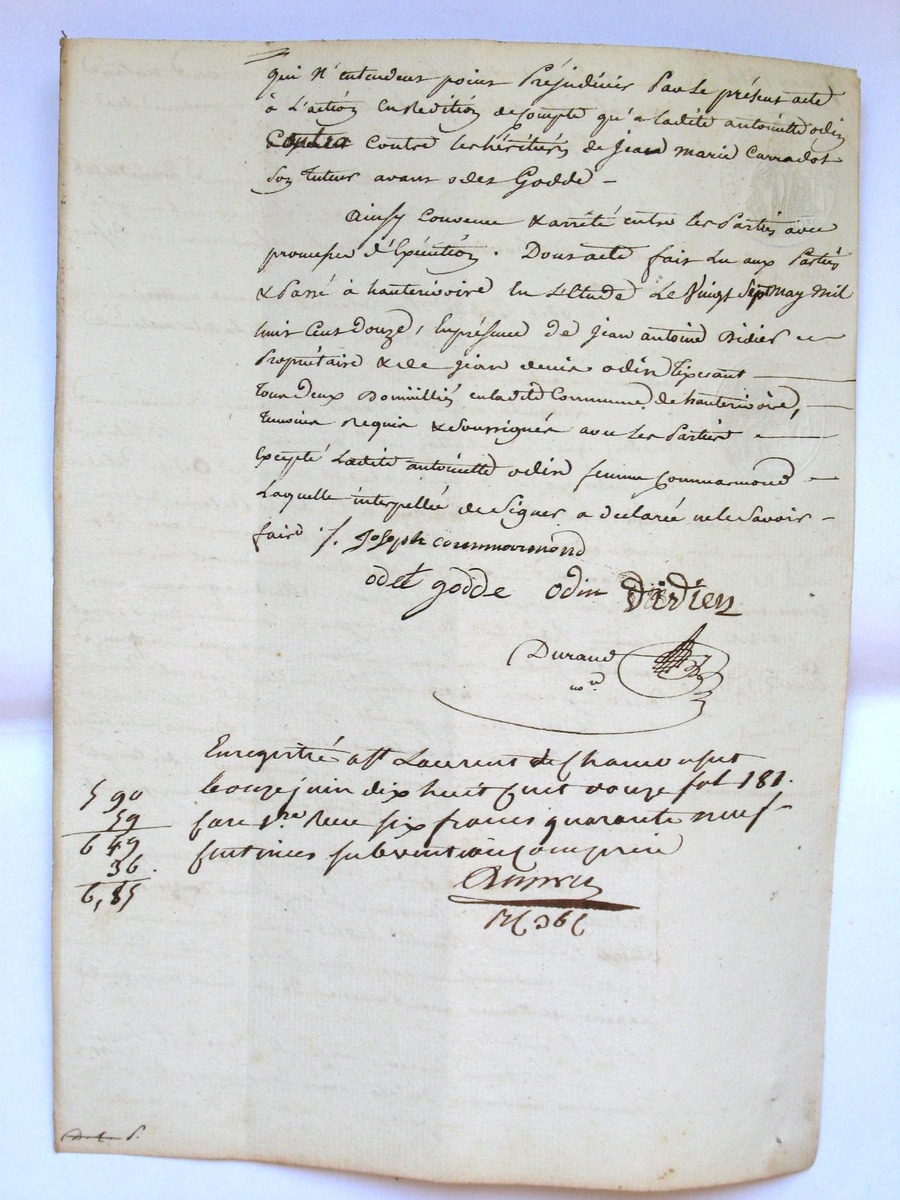 qui N'entendent point Préjudicier Par le présent acte
à L'action En Redition de Compte qu'a ladite antoinette odin
contre les héritiers de jean marie Carradot
Son tuteur avant odet Godde -
Ainsy Convenu & arrété entre les Parties avec
promesse d'Exécution. Dont acte fait Lu aux Parties
& Passé à hauterivoire En L'Etude Le Vingt Sept May Mil
huit Cent Douze, En présence de jean antoine Didier
Propriétaire & de jean denis odin
Tous Deux Domiciliés en ladite Commune de hauterivoire,
temoins Requis & Soussignés avec les Parties
Excepté Ladite antoinette odin femme Commarmond
Laquelle interpellée de Signer a déclarée ne le Savoir
faire ./. Joseph commarmond
odet godde odin didien
Durand
nore
Enregistré a St Laurent de Chamousset
le onze juin dix huit cent douze fol 181.
Case 1re Reçu six francs quarante neuf
centimes subvention comprise
5 90
59
6 49
36.
6,85